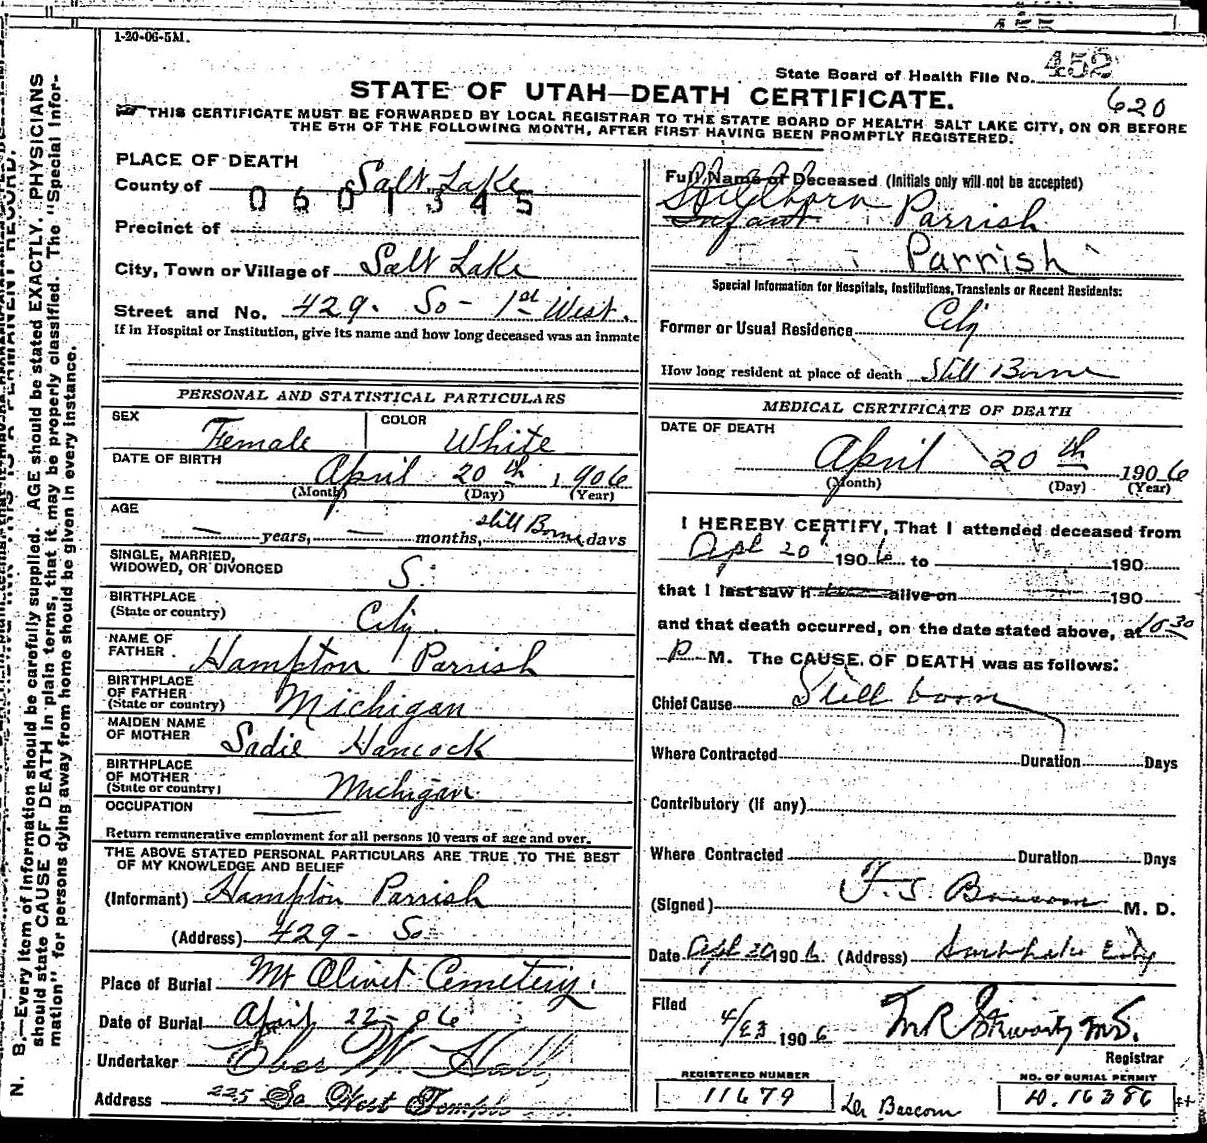 1-20-06-5M.
State Board of Health File No. 452
STATE OF UTAH—DEATH CERTIFICATE.
620
THIS CERTIFICATE MUST BE FORWARDED BY LOCAL REGISTRAR TO THE STATE BOARD OF HEALTH SALT LAKE CITY, ON OR BEFORE
THE 5TH OF THE FOLLOWING MONTH, AFTER FIRST HAVING BEEN PROMPTLY REGISTERED.
PLACE OF DEATH
County of Salt Lake
0601345
Precinct of
City, Town or Village of Salt Lake
Street and No. 429. So - 1st West.
If in Hospital or Institution, give its name and how long deceased was an inmate
PERSONAL AND STATISTICAL PARTICULARS
SEX Female COLOR White
DATE OF BIRTH April 20th, 1906
(Month) (Day) (Year)
AGE — years, — months, still Borne days
SINGLE, MARRIED,
WIDOWED, OR DIVORCED S.
BIRTHPLACE
(State or country) City.
NAME OF
FATHER. Hampton Parrish
BIRTHPLACE
OF FATHER
(State or country) Michigan
MAIDEN NAME
OF MOTHER Sadie Hancock
BIRTHPLACE
OF MOTHER
(State or country) Michigan
OCCUPATION
Return remunerative employment for all persons 10 years of age and over.
THE ABOVE STATED PERSONAL PARTICULARS ARE TRUE TO THE BEST
OF MY KNOWLEDGE AND BELIEF
(Informant) Hampton Parrish
(Address) 429 - So
Place of Burial Mt Olivet Cemetery.
Date of Burial April 22 - 06
Undertaker Eber W. Hall
Address 225 So West Temple
Full Name of Deceased (Initials only will not be accepted)
Stillborn
Infant Parrish
Parrish
Special Information for Hospitals, Institutions, Transients or Recent Residents:
Former or Usual Residence City
How long resident at place of death Still Borne
MEDICAL CERTIFICATE OF DEATH
DATE OF DEATH
April 20th 1906
(Month) (Day) (Year)
I HEREBY CERTIFY, That I attended deceased from
Apl 20 1906 to 190
that I last saw h alive on 190
and that death occurred, on the date stated above, at 10 30
P M. The CAUSE OF DEATH was as follows:
Chief Cause Still born
Where Contracted Duration Days
Contributory (If any)
Where Contracted Duration Days
(Signed) F. S. Bascom M. D.
Date Apl 20 1906 (Address) Salt Lake City
Filed 4/23 1906 M R Stewart M.D.
Registrar
REGISTERED NUMBER
11679
Dr Bascom
NO. OF BURIAL PERMIT
16386
N. B.—Every item of information should be carefully supplied. AGE should be stated EXACTLY. PHYSICIANS
should state CAUSE OF DEATH in plain terms, that it may be properly classified. The "Special Infor-
mation" for persons dying away from home should be given in every instance.